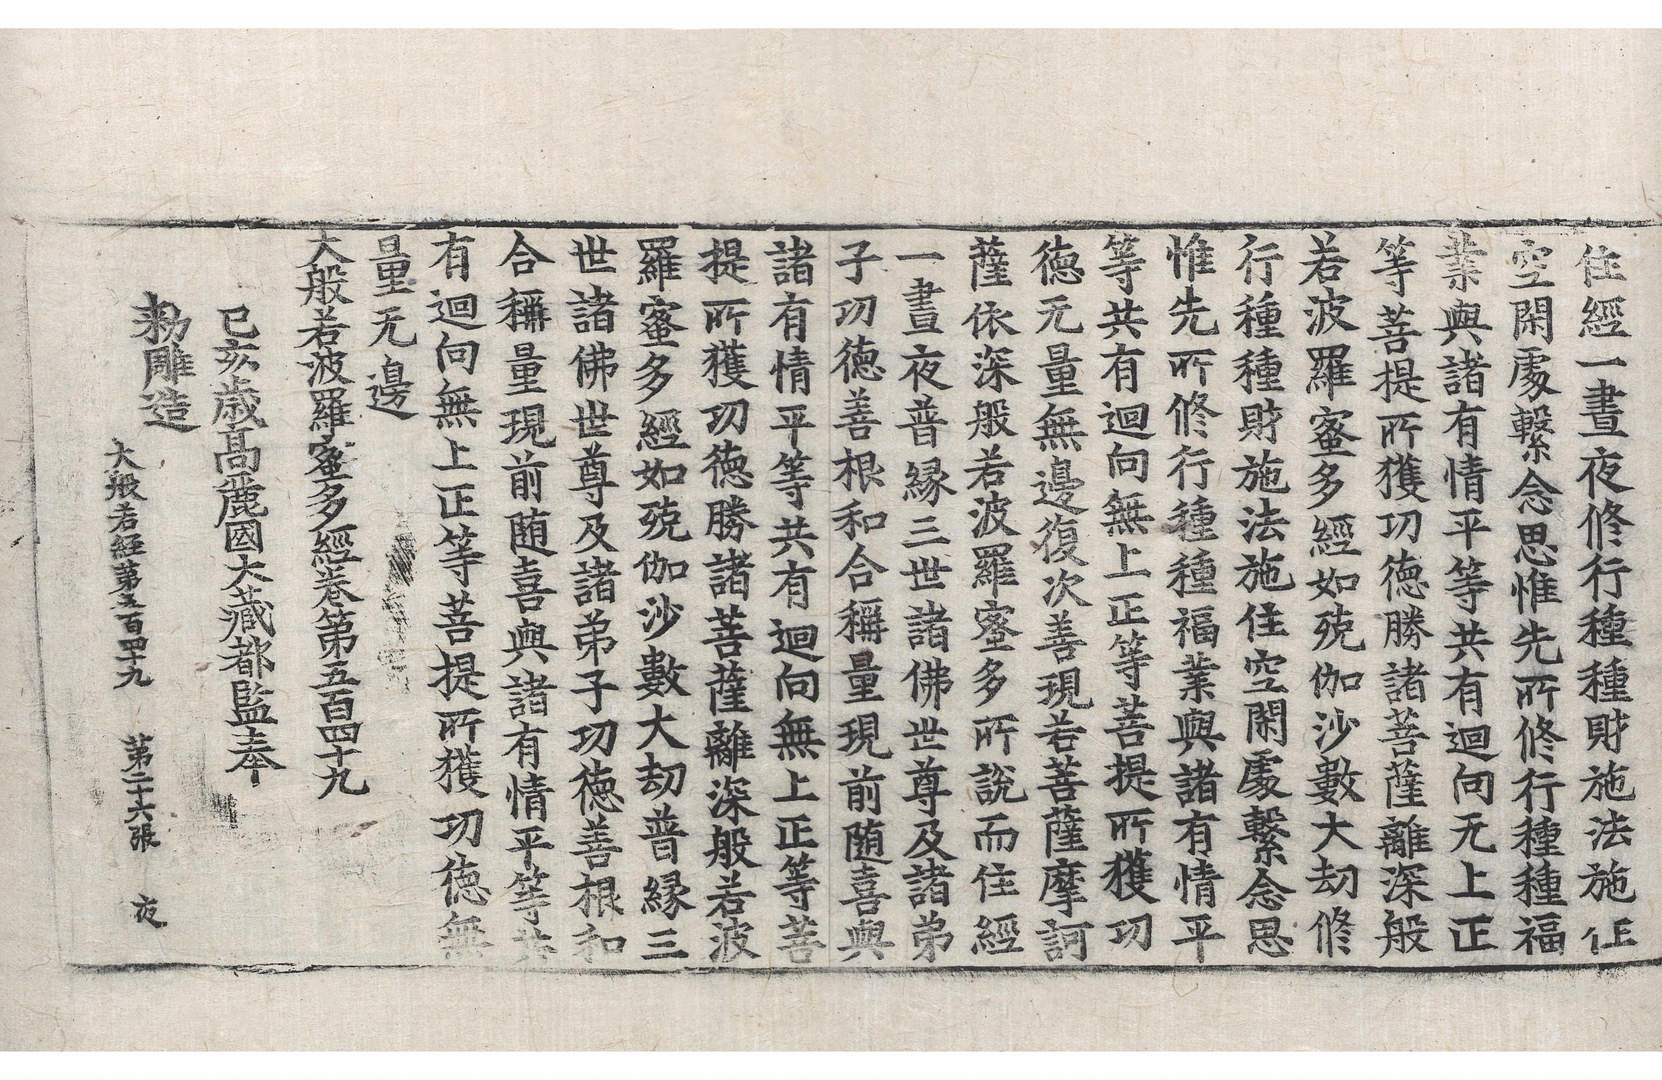 住經一晝夜修行種種財施法施住
空閑處繫念思惟先所修行種種福
業與諸有情平等共有迴向无上正
等菩提所獲功德勝諸菩薩離深般
若波羅蜜多經如殑伽沙數大劫修
行種種財施法施住空閑處繫念思
惟先所修行種種福業與諸有情平
等共有迴向無上正等菩提所獲功
德无量無邊復次善現若菩薩摩訶
薩依深般若波羅蜜多所說而住經
一晝夜普緣三世諸佛世尊及諸弟
子功德善根和合稱量現前隨喜與
諸有情平等共有迴向無上正等菩
提所獲功德勝諸菩薩離深般若波
羅蜜多經如殑伽沙數大劫普緣三
世諸佛世尊及諸弟子功德善根和
合稱量現前隨喜與諸有情平等共
有迴向無上正等菩提所獲功德無
量无邊
大般若波羅蜜多經卷第五百四十九
己亥歲高麗國大藏都監奉
勅雕造
大般若經第五百四十九 第二十六張 夜